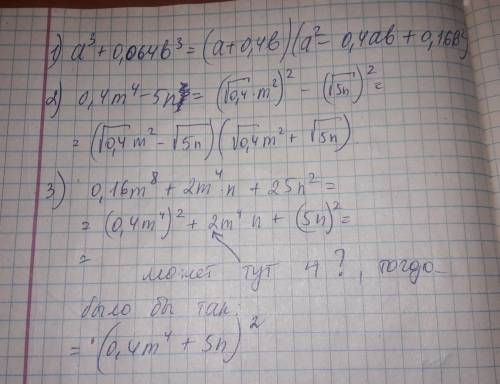 1) a³ + 0,064b³ = (a + 0,4b)(a² - 0,4ab + 0,16b²)
2) 0,4m⁴ - 5n = (√0,4 · m²)² - (√5n)² =
= (√0,4 m² - √5n)(√0,4 m² + √5n)
3) 0,16m⁸ + 2m⁴ · n + 25n² =
= (0,4m⁴)² + 2m⁴ n + (5n)² =
=
может тут 4?, тогда
было бы так:
= (0,4m⁴ + 5n)²